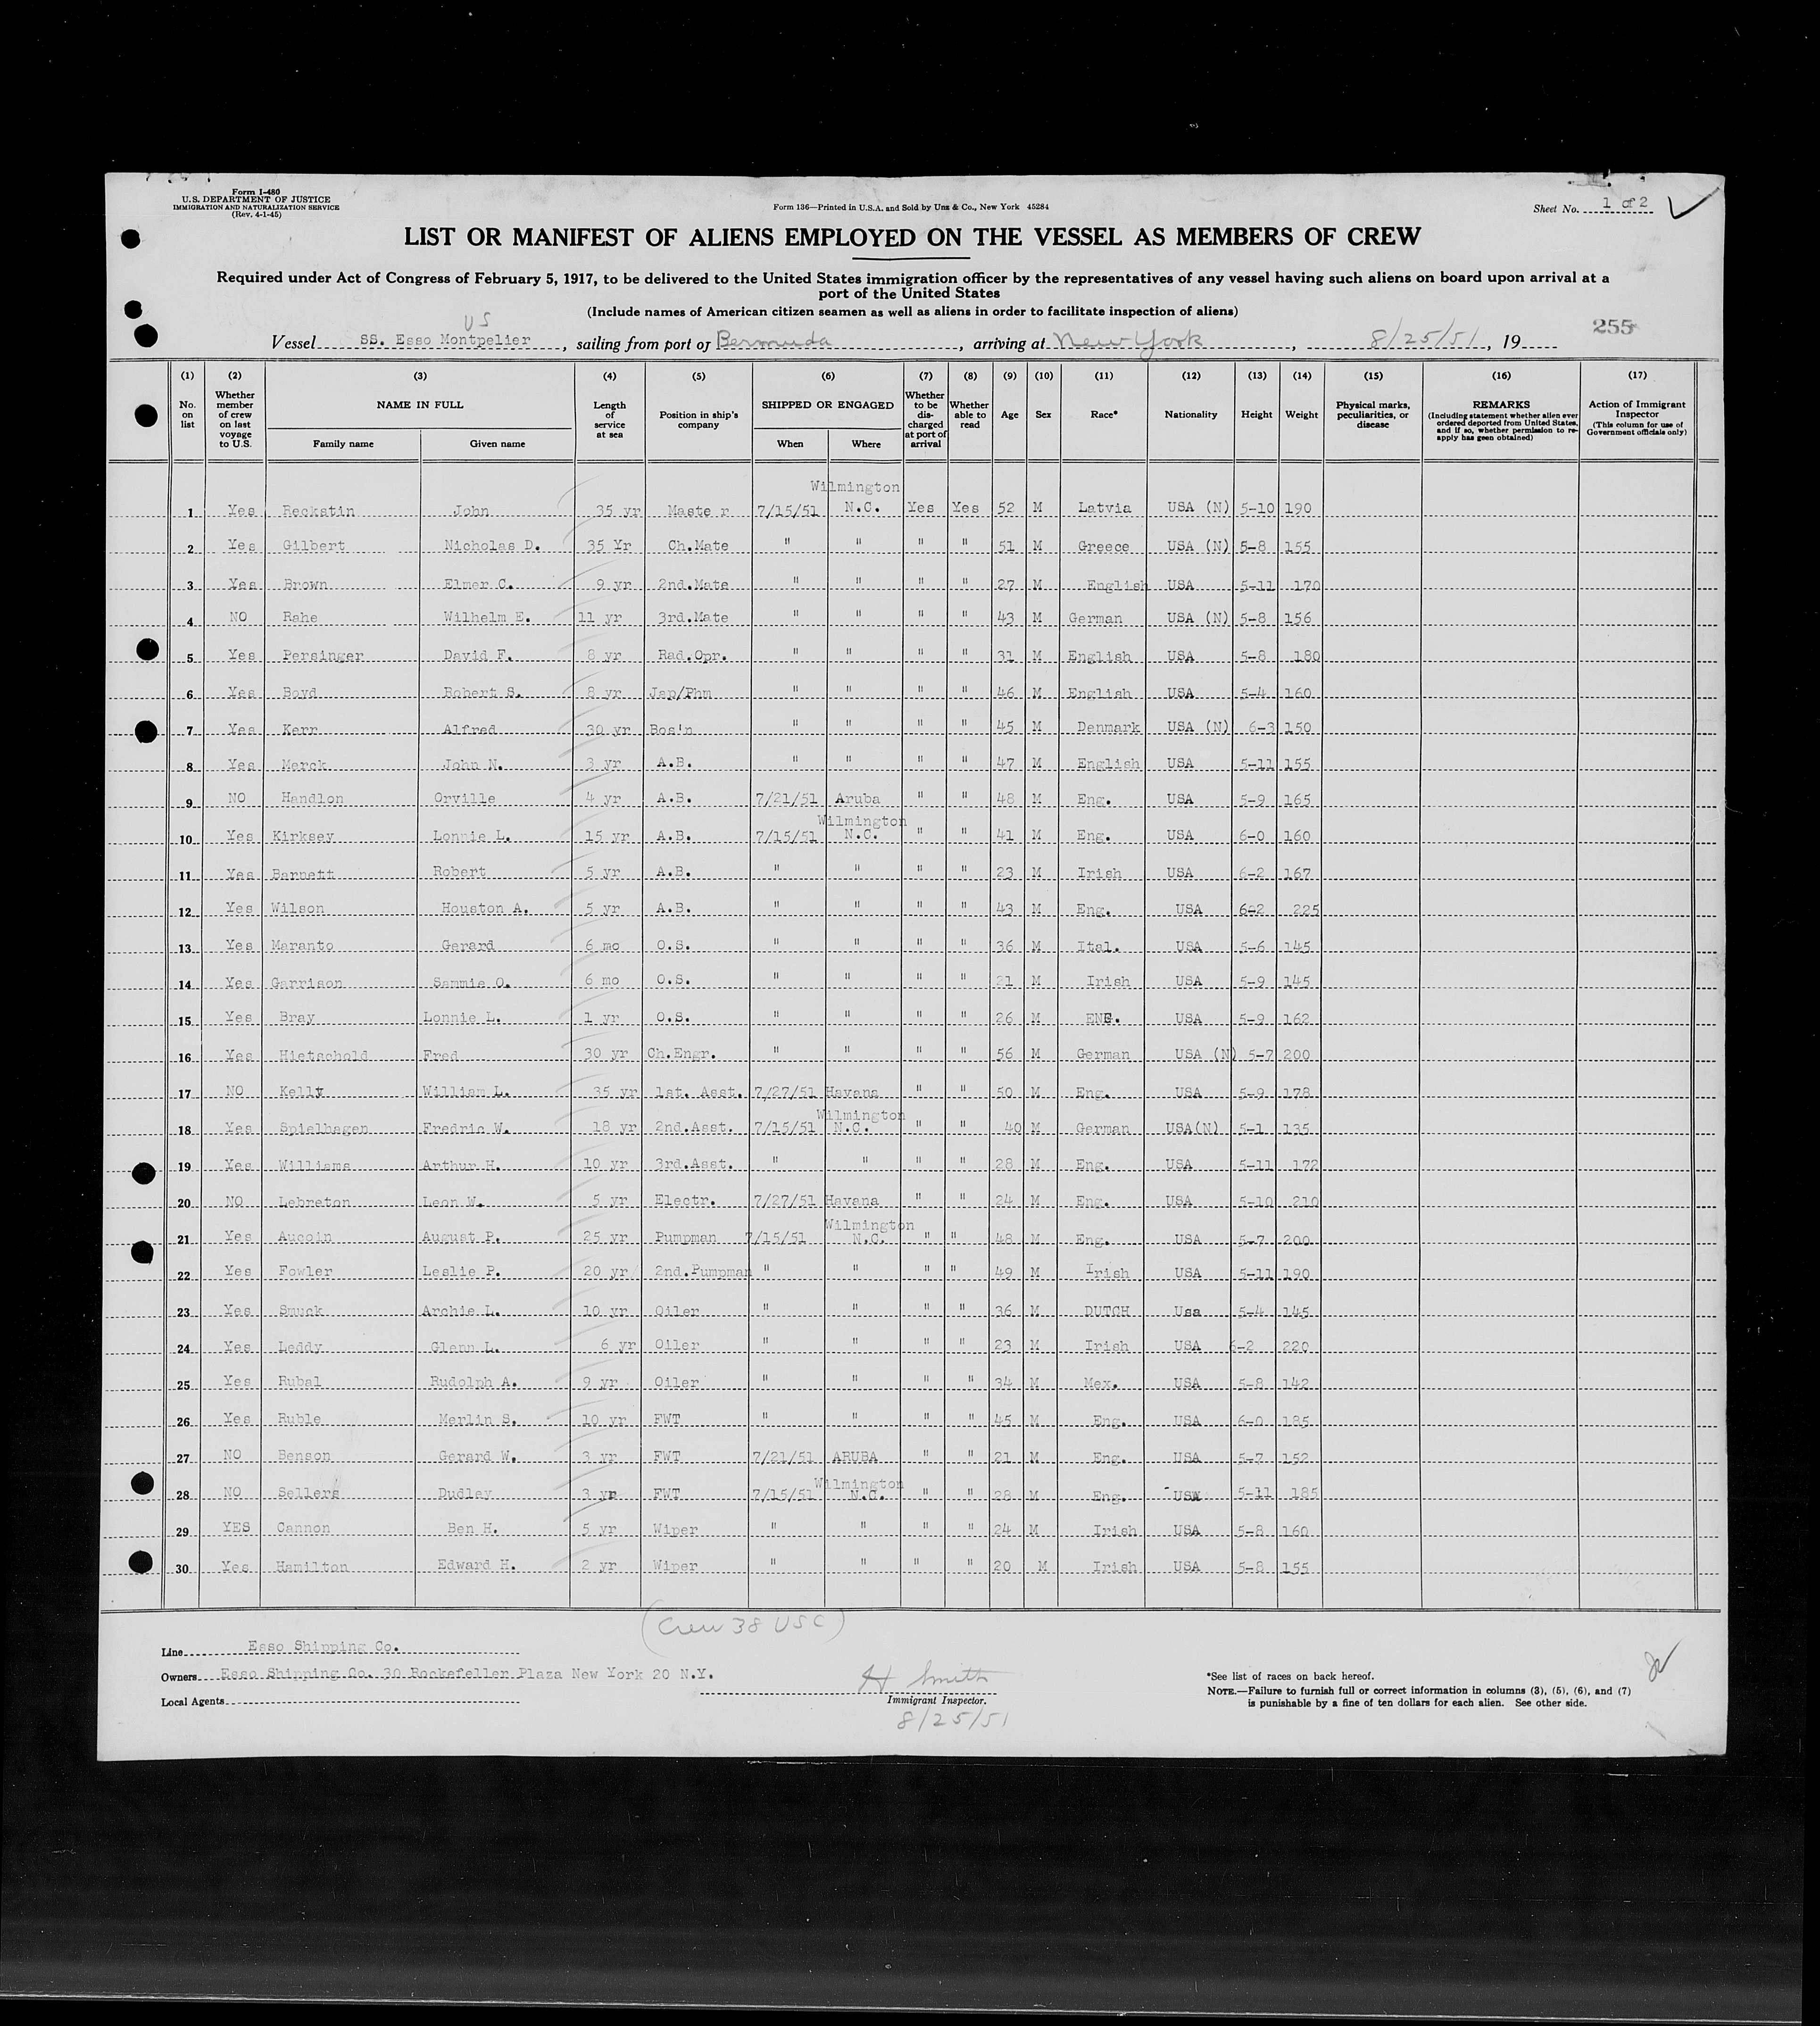 Form I-480
U.S. DEPARTMENT OF JUSTICE
IMMIGRATION AND NATURALIZATION SERVICE
(Rev. 4-1-45)
Form 136—Printed in U.S.A. and Sold by Unz & Co., New York 45284
Sheet No. 1 of 2
LIST OR MANIFEST OF ALIENS EMPLOYED ON THE VESSEL AS MEMBERS OF CREW
Required under Act of Congress of February 5, 1917, to be delivered to the United States immigration officer by the representatives of any vessel having such aliens on board upon arrival at a
port of the United States
(Include names of American citizen seamen as well as aliens in order to facilitate inspection of aliens)
US
255
Vessel SS. Esso Montpelier, sailing from port of Bermuda, arriving at New York, 8/25/51, 19
(1) No. on list (2) Whether member of crew on last voyage to U.S. (3) NAME IN FULL Family name Given name (4) Length of service at sea (5) Position in ship's company (6) SHIPPED OR ENGAGED When Where (7) Whether to be discharged at port of arrival (8) Whether able to read (9) Age (10) Sex (11) Race* (12) Nationality (13) Height (14) Weight (15) Physical marks, peculiarities, or disease (16) REMARKS (Including statement whether alien ever ordered deported from United States, and if so, whether permission to re-apply has geen obtained) (17) Action of Immigrant Inspector (This column for use of Government officials only)
1 Yes Reckstin John 35 yr Maste r 7/15/51 Wilmington N.C. Yes Yes 52 M Latvia USA (N) 5-10 190
2 Yes Gilbert Nicholas D. 35 Yr Ch.Mate " " " " 51 M Greece USA (N) 5-8 155
3 Yes Brown Elmer C. 9 yr 2nd.Mate " " " " 27 M English USA 5-11 170
4 NO Rahe Wilhelm E. 11 yr 3rd.Mate " " " " 43 M German USA (N) 5-8 156
5 Yes Persinger David F. 8 yr Rad.Opr. " " " " 31 M English USA 5-8 180
6 Yes Boyd Robert S. 8 yr Jsp/Phm " " " " 46 M English USA 5-4 160
7 Yes Kerr Alfred 30 yr Bos'n " " " " 45 M Denmark USA (N) 6-3 150
8 Yes Merck John N. 3 yr A.B. " " " " 47 M English USA 5-11 155
9 NO Handlon Orville 4 yr A.B. 7/21/51 Aruba " " 48 M Eng. USA 5-9 165
10 Yes Kirksey Lonnie L. 15 yr A.B. 7/15/51 Wilmington N.C. " " 41 M Eng. USA 6-0 160
11 Yes Barnett Robert 5 yr A.B. " " " " 23 M Irish USA 6-2 167
12 Yes Wilson Houston A. 5 yr A.B. " " " " 43 M Eng. USA 6-2 225
13 Yes Maranto Gerard 6 mo O.S. " " " " 36 M Ital. USA 5-6 145
14 Yes Garrison Sammie O. 6 mo O.S. " " " " 21 M Irish USA 5-9 145
15 Yes Bray Lonnie L. 1 yr O.S. " " " " 26 M ENG. USA 5-9 162
16 Yes Hietschold Fred 30 yr Ch.Engr. " " " " 56 M German USA (N) 5-7 200
17 NO Kelly William L. 35 yr 1st. Asst. 7/27/51 Havana " " 50 M Eng. USA 5-9 178
18 Yes Spielhagen Fredric W. 18 yr 2nd.Asst. 7/15/51 Wilmington N.C. " " 40 M German USA(N) 5-1 135
19 Yes Williams Arthur H. 10 yr 3rd.Asst. " " " " 28 M Eng. USA 5-11 172
20 NO Lebreton Leon W. 5 yr Electr. 7/27/51 Havana " " 24 M Eng. USA 5-10 210
21 Yes Aucoin August P. 25 yr Pumpman 7/15/51 Wilmington N.C. " " 48 M Eng. USA 5-7 200
22 Yes Fowler Leslie P. 20 yr 2nd.Pumpman " " " " 49 M Irish USA 5-11 190
23 Yes Smuck Archie L. 10 yr Oiler " " " " 36 M DUTCH Usa 5-4 145
24 Yes Leddy Glenn L. 6 yr Oiler " " " " 23 M Irish USA 6-2 220
25 Yes Rubal Rudolph A. 9 yr Oiler " " " " 34 M Mex. USA 5-8 142
26 Yes Ruble Merlin S. 10 yr FWT " " " " 45 M Eng. USA 6-0 185
27 NO Benson Gerard W. 3 yr FWT 7/21/51 ARUBA " " 21 M Eng. USA 5-7 152
28 NO Sellers Dudley 3 yr FWT 7/15/51 Wilmington N.C. " " 28 M Eng. USA 5-11 185
29 YES Cannon Ben H. 5 yr Wiper " " " " 24 M Irish USA 5-8 160
30 Yes Hamilton Edward H. 2 yr Wiper " " " " 20 M Irish USA 5-8 155
(Crew 38 USC)
Line Esso Shipping Co.
Owners Esso Shipping Co. 30 Rockefeller Plaza New York 20 N.Y.
Local Agents
H Smith
Immigrant Inspector.
8/25/51
*See list of races on back hereof.
NOTE.—Failure to furnish full or correct information in columns (3), (5), (6), and (7)
is punishable by a fine of ten dollars for each alien. See other side.